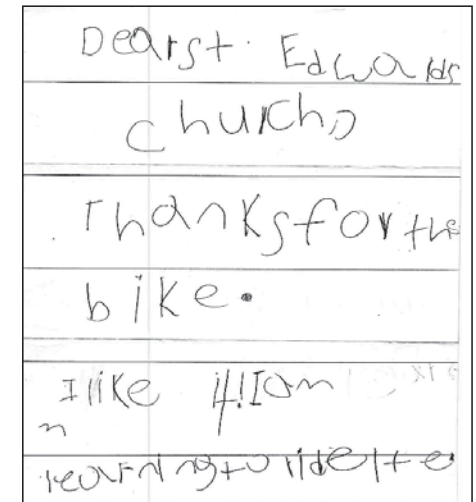 Dearst. Edwards
church,
Thanks for the
bike.
I like it! I am
learning to ride